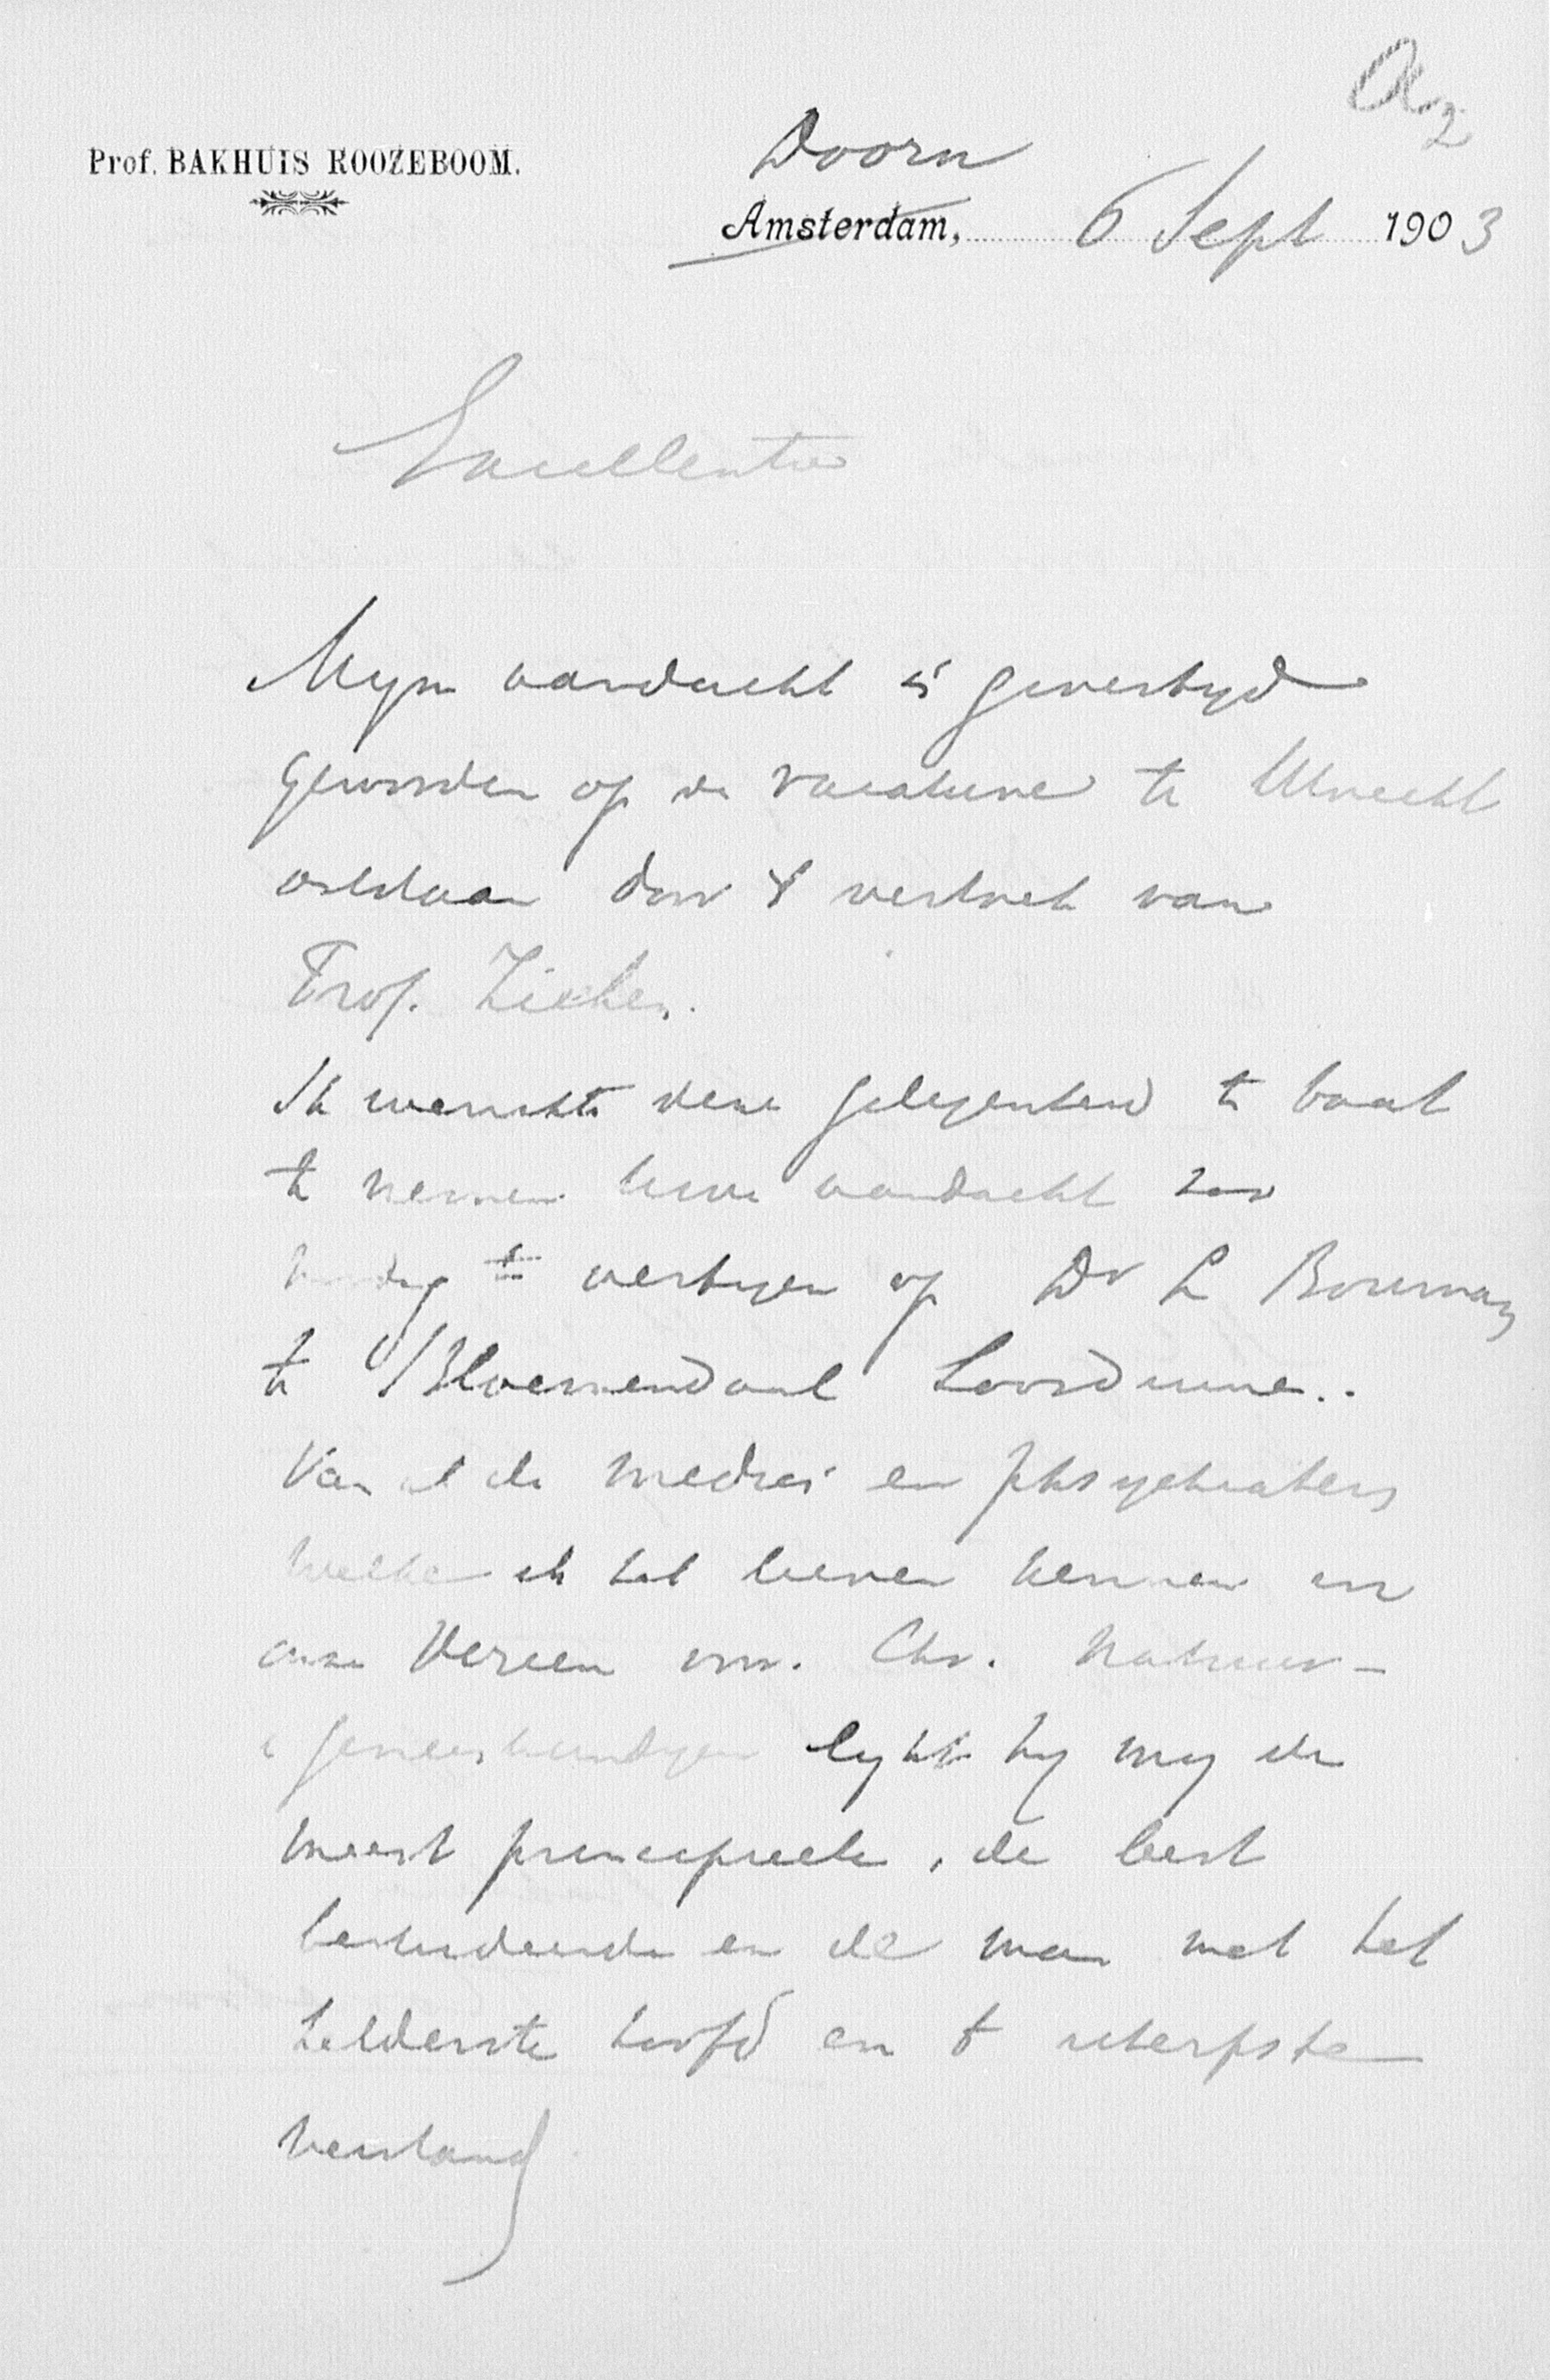 A2
Prof. BAKHUIS ROOZEBOOM.
Doorn
Amsterdam, 6 Sept 1903
Excellentie
Mijn aandacht is gevestigd
geworden op de vacature te Utrecht
ontstaan door 't vertrek van
Prof. Ziehen.
Ik wenschte deze gelegenheid te baat
te nemen Uwe aandacht zeer
te vestigen op Dr L Bouman
te /Bloemendaal Loosduinen.
Van al de medici en phsychiaters
welke ik heb leeren kennen in
onze Vereen v. Chr. Natuur-
& geneeskundigen lijkt hij mij de
meest principieele, de best
bestudeerde en de man met het
helderste hoofd en 't scherpste
verstand